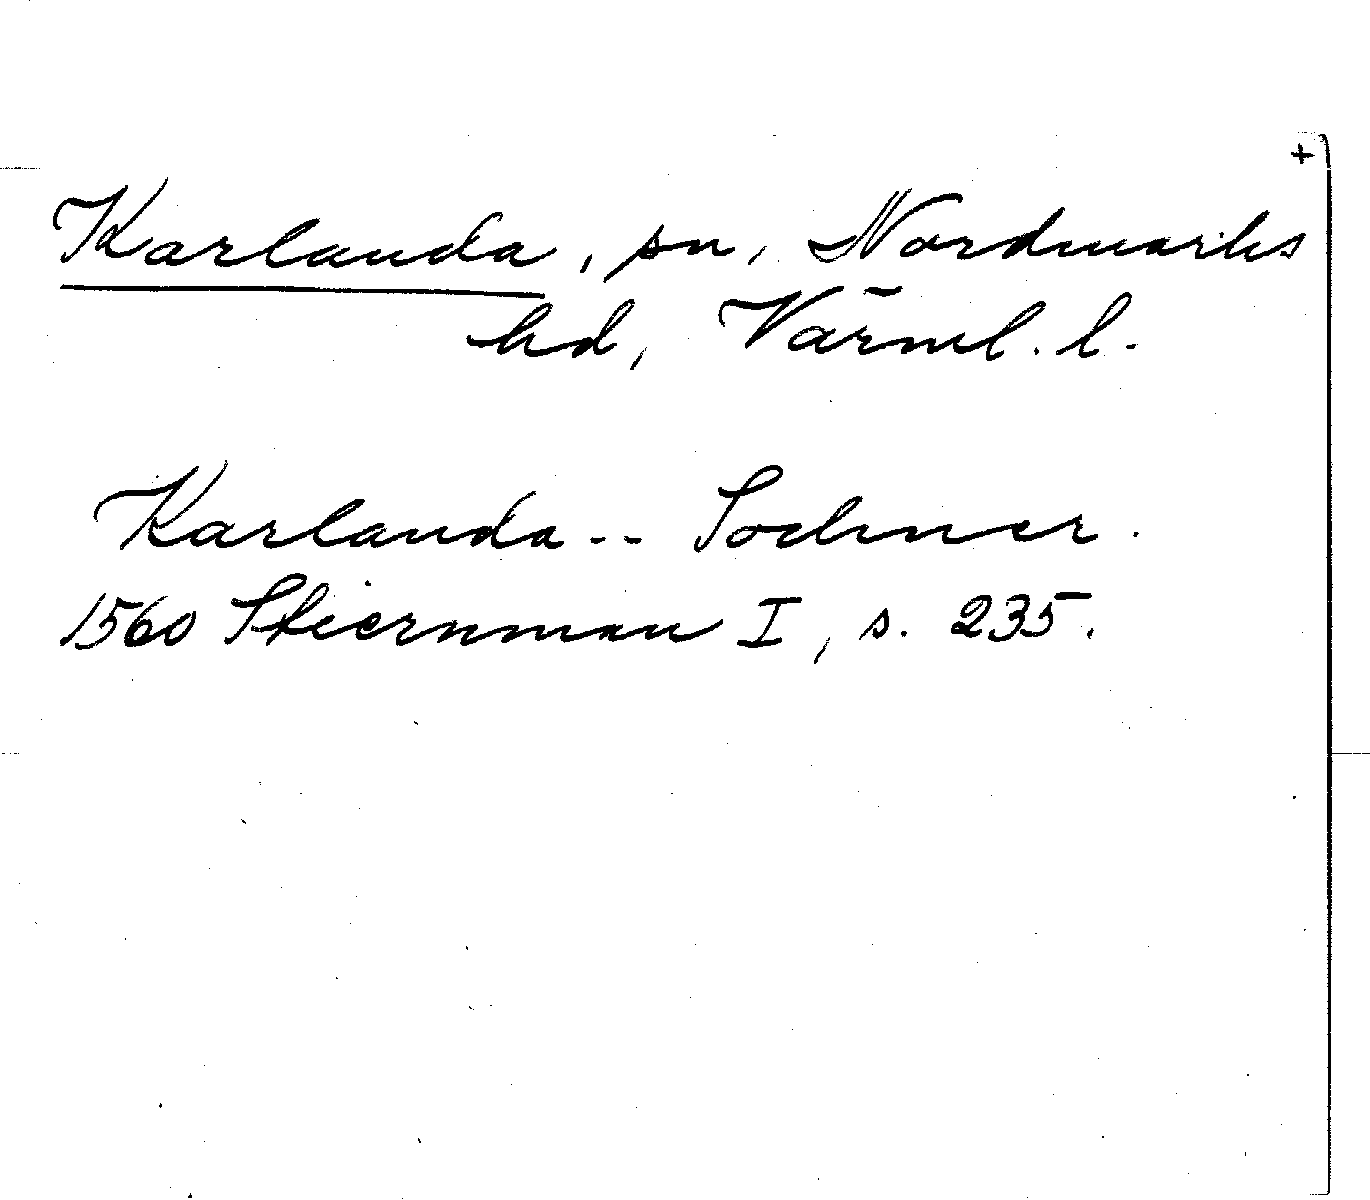 +
Karlanda, sn, Nordmarks
hd, Värml. l.
Karlanda -- Sochner.
1560 Stiernman I, s. 235.